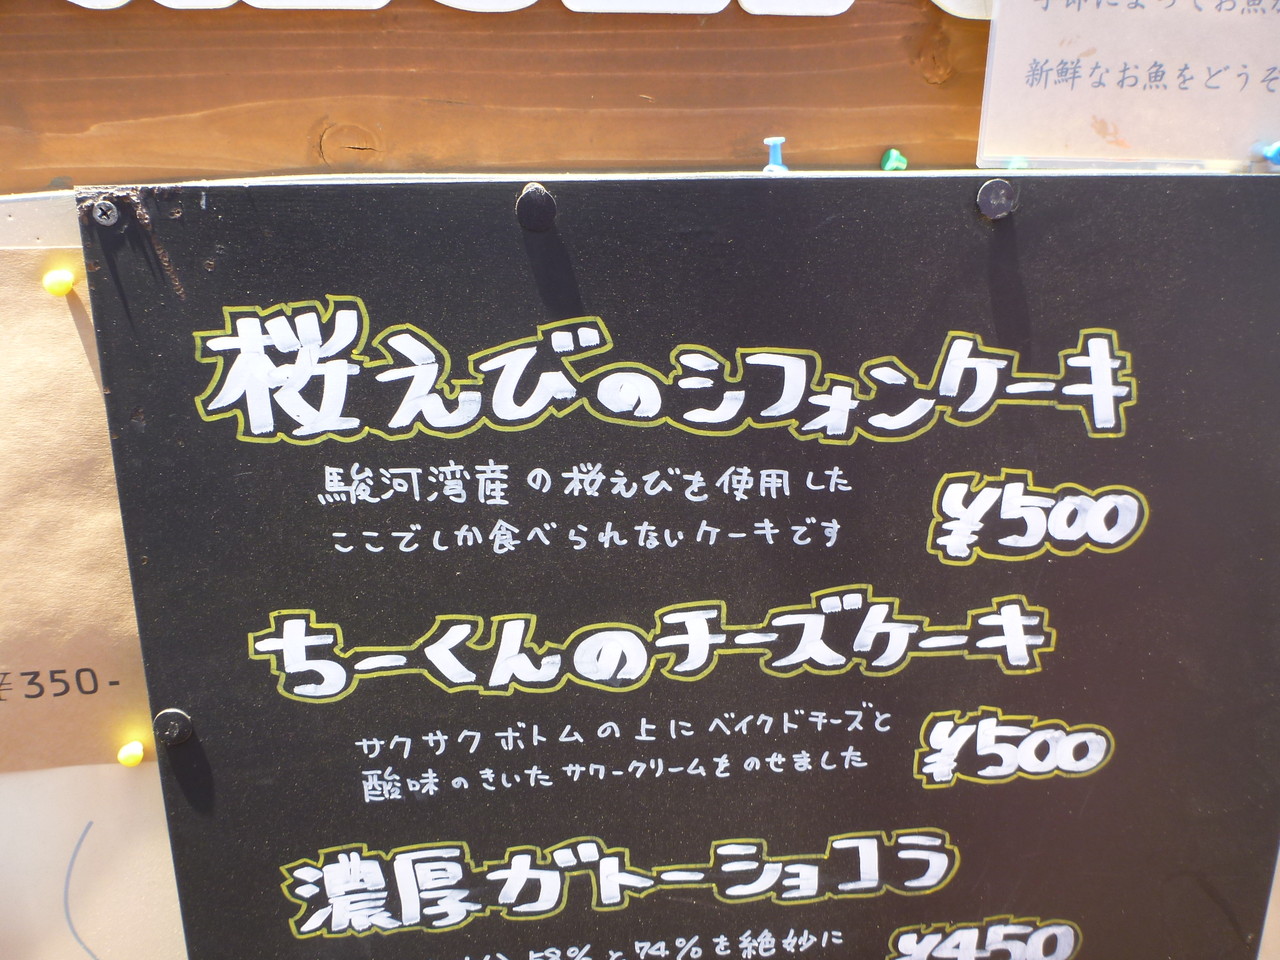 新鮮なお魚をどうぞ
桜えびのシフォンケーキ
駿河湾産の桜えびを使用した
ここでしか食べられないケーキです
¥500
ちーくんのチーズケーキ
サクサクボトムの上にベイクドチーズと
酸味のきいたサワークリームをのせました
¥500
¥350-
濃厚ガトーショコラ
58%と74%を絶妙に
¥450